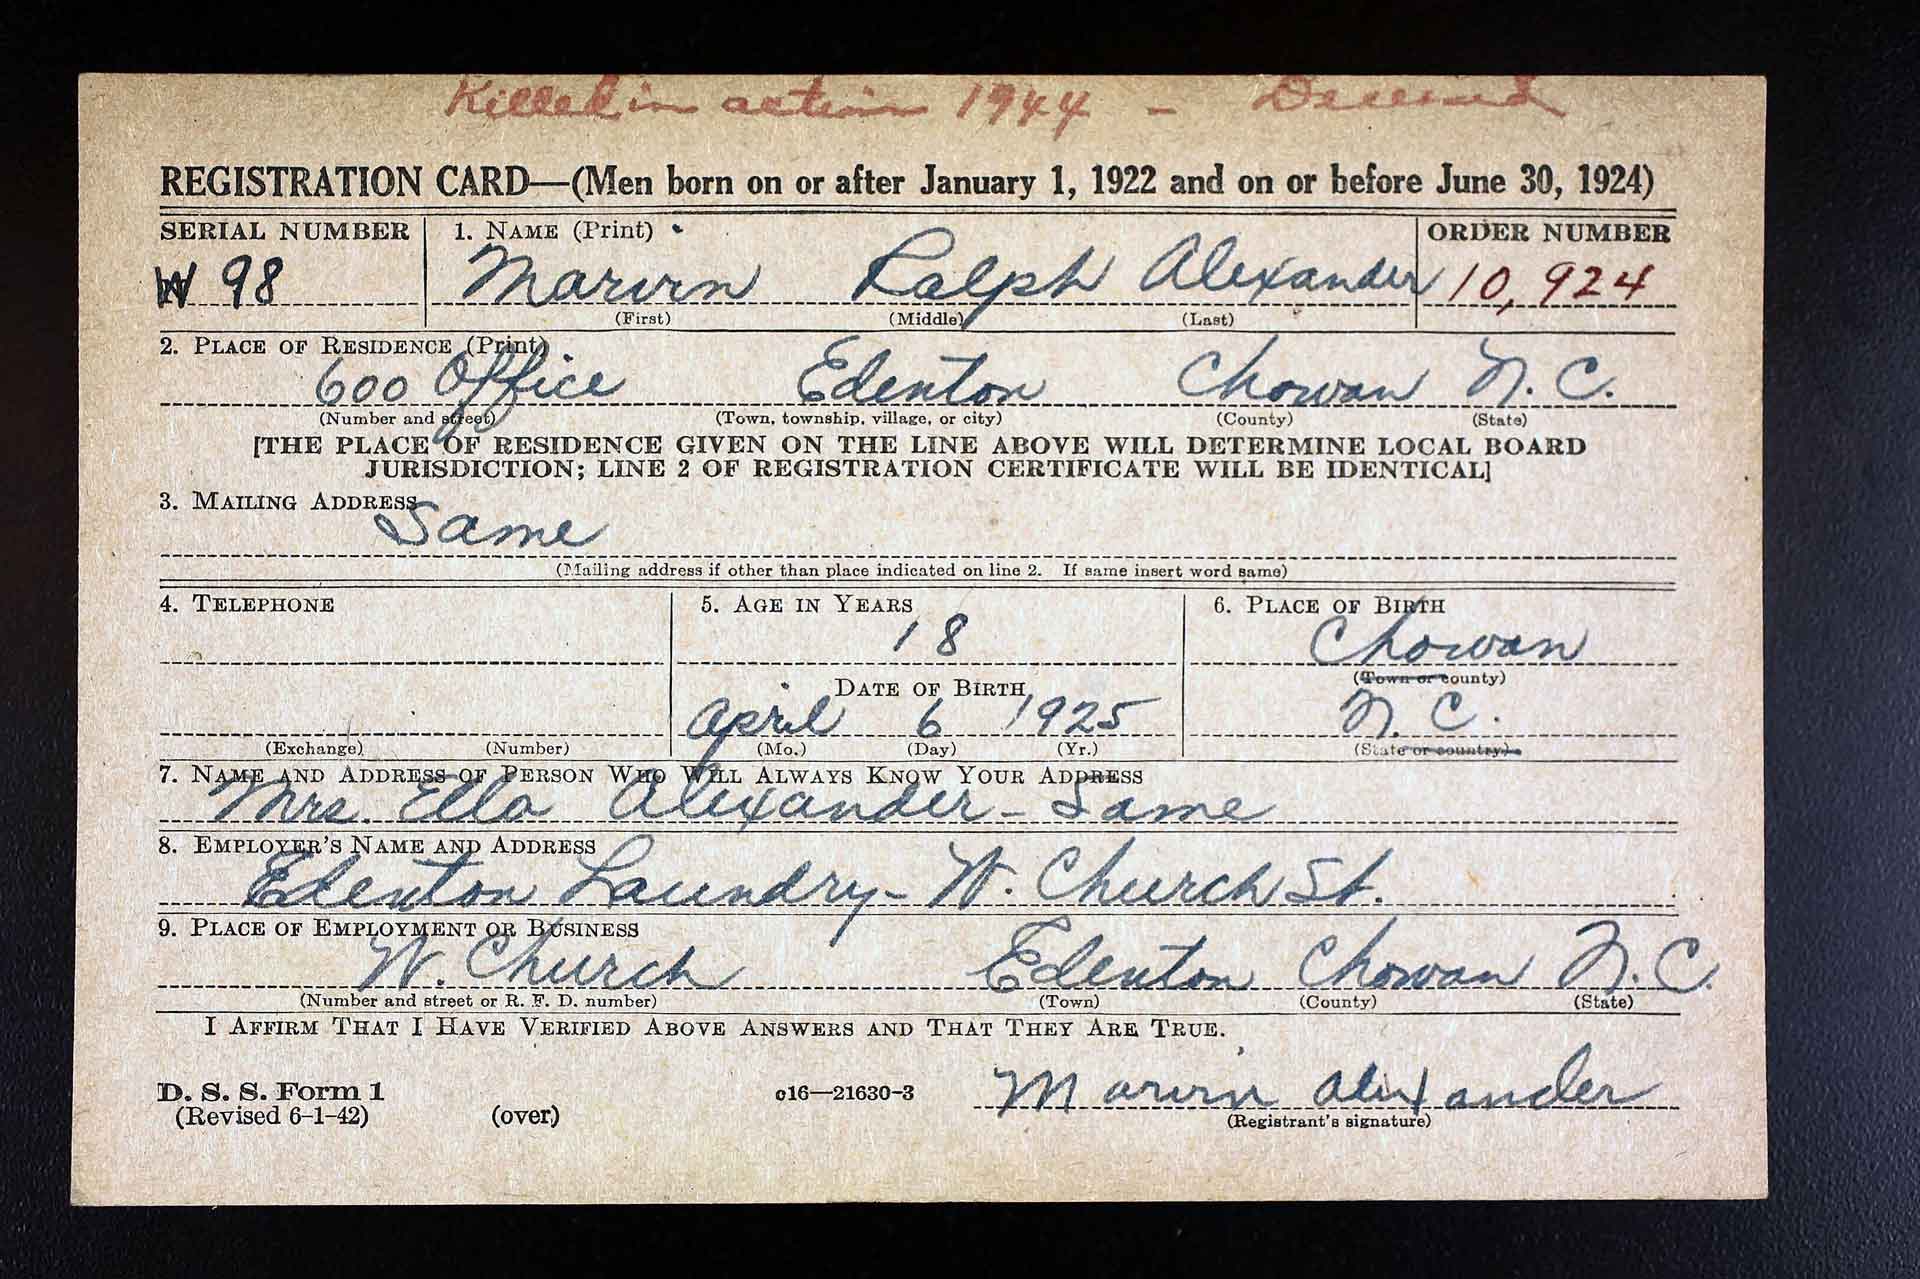 Killed in action 1944 - Deceased
REGISTRATION CARD—(Men born on or after January 1, 1922 and on or before June 30, 1924)
SERIAL NUMBER 1. NAME (Print) ORDER NUMBER
W 98 Marvin Ralph Alexander 10,924
(First) (Middle) (Last)
2. PLACE OF RESIDENCE (Print)
600 Office Edenton Chowan N. C.
(Number and street) (Town, township, village, or city) (County) (State)
[THE PLACE OF RESIDENCE GIVEN ON THE LINE ABOVE WILL DETERMINE LOCAL BOARD
JURISDICTION; LINE 2 OF REGISTRATION CERTIFICATE WILL BE IDENTICAL]
3. MAILING ADDRESS
Same
(Mailing address if other than place indicated on line 2. If same insert word same)
4. TELEPHONE 5. AGE IN YEARS 6. PLACE OF BIRTH
18 Chowan
(Town or county)
DATE OF BIRTH
April 6 1925 N. C.
(Exchange) (Number) (Mo.) (Day) (Yr.) (State or country)
7. NAME AND ADDRESS OF PERSON WHO WILL ALWAYS KNOW YOUR ADDRESS
Mrs. Ella Alexander - Same
8. EMPLOYER'S NAME AND ADDRESS
Edenton Laundry - W. Church St.
9. PLACE OF EMPLOYMENT OR BUSINESS
W. Church Edenton Chowan N. C.
(Number and street or R. F. D. number) (Town) (County) (State)
I AFFIRM THAT I HAVE VERIFIED ABOVE ANSWERS AND THAT THEY ARE TRUE.
D. S. S. Form 1 c16—21630-3 Marvin Alexander
(Revised 6-1-42) (over) (Registrant's signature)